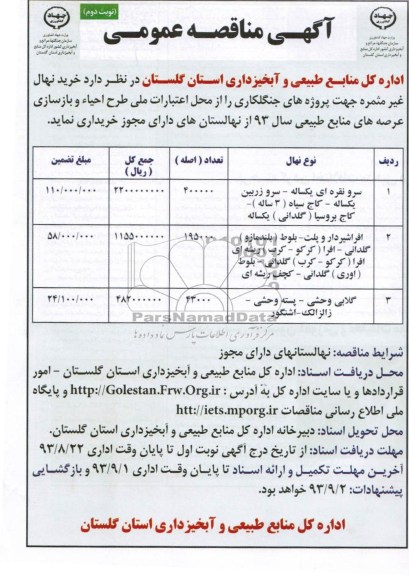 (نوبت دوم)
آگهی مناقصه عمومی
اداره کل منابع طبیعی و آبخیزداری استان گلستان در نظر دارد خرید نهال
غیر مثمره جهت پروژه های جنگلکاری را از محل اعتبارات ملی طرح احیاء و بازسازی
عرصه های منابع طبیعی سال ۹۳ از نهالستان های دارای مجوز خریداری نماید.
ردیف نوع نهال تعداد ( اصله ) جمع کل ( ریال ) مبلغ تضمین
۱ سرو نقره ای یکساله - سرو زربین ۴۰۰۰۰۰ ۲۲۰۰۰۰۰۰۰۰ ۱۱۰/۰۰۰/۰۰۰
یکساله - کاج سیاه ( ۳ ساله ) -
کاج بروسیا ( گلدانی ) یکساله
۲ افراشیردار و پلت- بلوط ( بلندمازو ) ۱۹۵۰۰۰ ۱۱۵۵۰۰۰۰۰۰ ۵۸/۰۰۰/۰۰۰
گلدانی - افرا ( کرکو - کرب ) ریشه ای
افرا ( کرکو - کرب ) گلدانی - بلوط
( اوری ) گلدانی - کچف ریشه ای
۳ گلابی وحشی - پسته وحشی - ۴۳۰۰۰ ۴۸۲۰۰۰۰۰۰ ۲۴/۱۰۰/۰۰۰
زالزالک-اشنگور
ParsNamadData
مرکز فرآوری اطلاعات پارس نماد داده ها
شرایط مناقصه: نهالستانهای دارای مجوز
محل دریافت اسناد: اداره کل منابع طبیعی و آبخیزداری استان گلستان - امور
قراردادها و یا سایت اداره کل به آدرس : http://Golestan.Frw.Org.ir و پایگاه
ملی اطلاع رسانی مناقصات htt://iets.mporg.ir
محل تحویل اسناد: دبیرخانه اداره کل منابع طبیعی و آبخیزداری استان گلستان.
مهلت دریافت اسناد: از تاریخ درج آگهی نوبت اول تا پایان وقت اداری ۹۳/۸/۲۲
آخرین مهلت تکمیل و ارائه اسناد تا پایان وقت اداری ۹۳/۹/۱ و بازگشایی
پیشنهادات: ۹۳/۹/۲ خواهد بود.
اداره کل منابع طبیعی و آبخیزداری استان گلستان